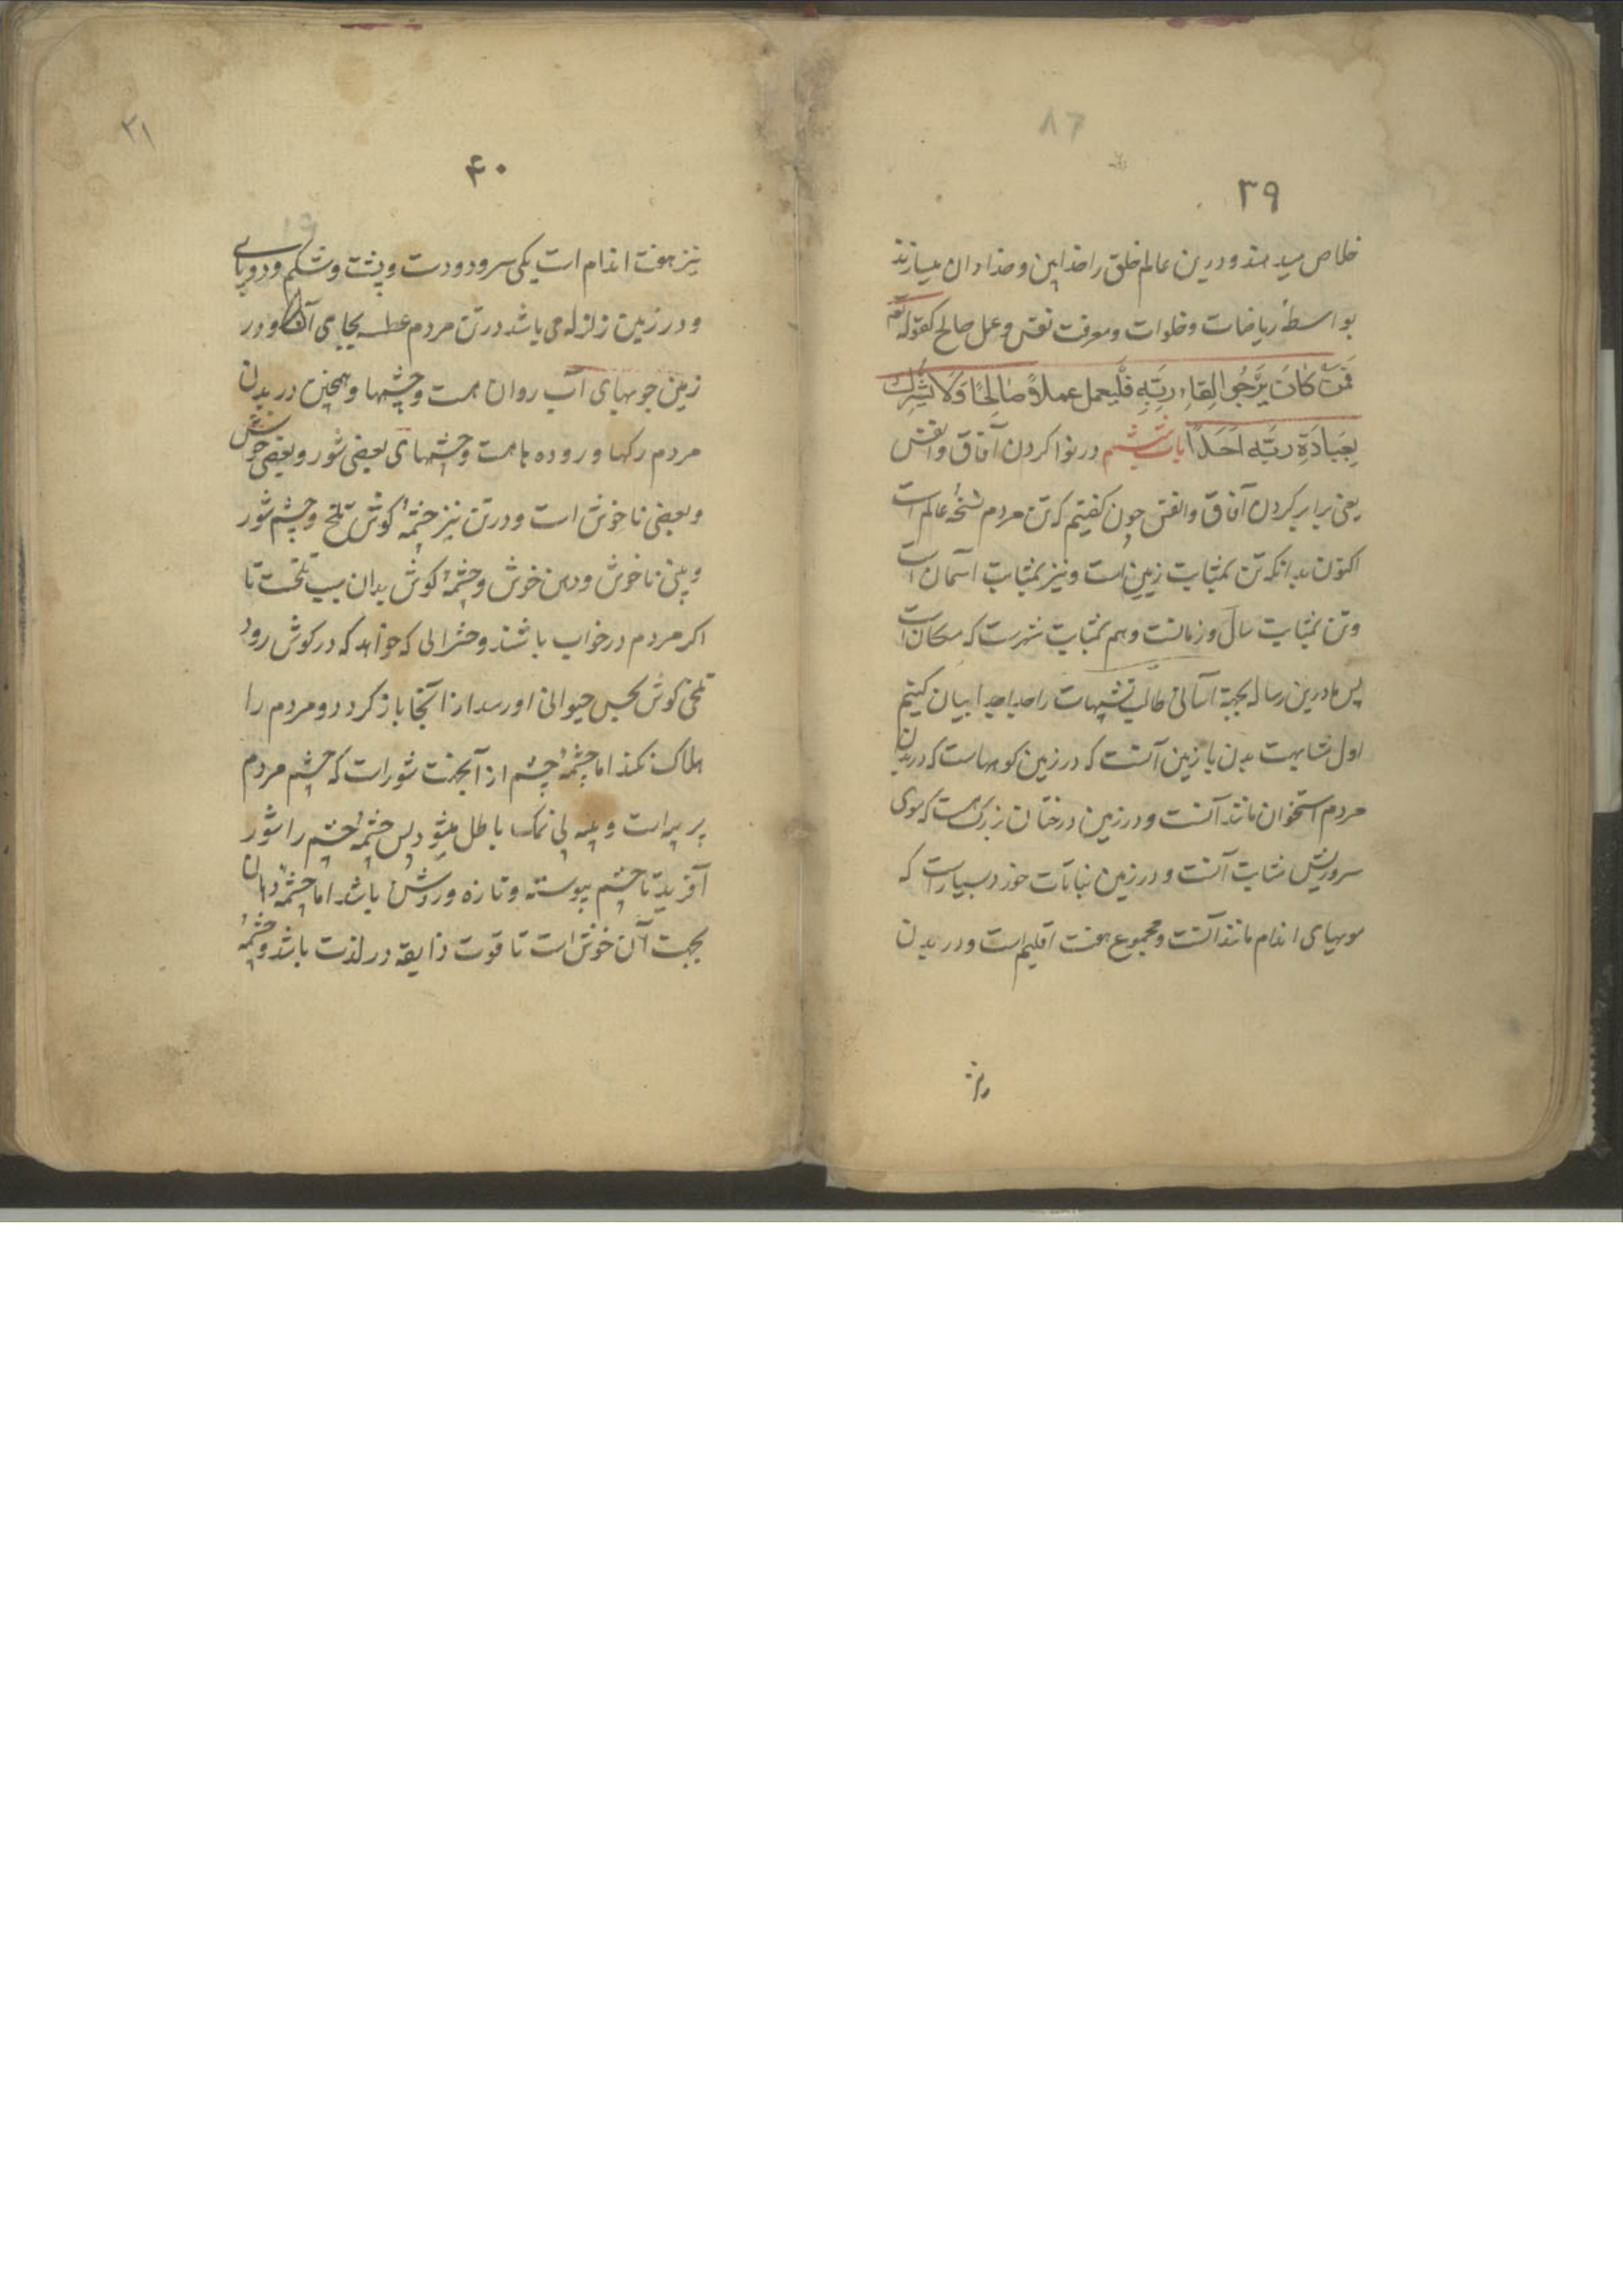 ۳۹
خلاص میدهند و درین عالم خلق را خدابین و خدادان میسازند
بواسطهٔ ریاضات و خلوات و معرفت نفس و عمل صالح کقوله تع
فَمَنْ كَانَ يَرْجُوا لِقَاءِ رَبِّهِ فَلْيَعمل عملاً صَالِحًا وَلَا يُشْرِكْ
بِعِبَادَةِ رَبِّهِ اَحَدًا باب ششم در نوا کردن آفاق و انفس
یعنی برابر کردن آفاق و انفس چون کفتیم که تن مردم نسخهٔ عالم است
اکنون بدانکه تن بمثابت زمین است و نیز بمثابت آسمان است
و تن بمثابت سال و زمانست و هم بمثابت شهرست که مکان است
پس ما درین رساله بجهة آسانی طالب تشبیهات را جدا جدا بیان کنیم
اول مشابهت بدن با زمین آنست که در زمین کوههاست که در بدن
مردم استخوان مانند آنست و در زمین درختان بزرکست که موی
سر و ریش مشابت آنست و در زمین نباتات خورد بسیار است که
مویهای اندام مانند آنست و مجموع هفت اقلیم است و در بدن
۴۰
۳۱
نیز هفت اندام است یکی سر و دو دست و پشت و شکم و دو پای
و در زمین زلزله می باشد در تن مردم عطسه بجای آن و در
زمین جویهای آب روان هست و چشمها و همچنین در بدن
مردم رکها و روده ها هست و چشمهای بعضی شور و بعضی خوش
و بعضی ناخوش است و در تن نیز چشمهٔ کوش تلخ و چشم شور
و بینی ناخوش و دهن خوش و چشمهٔ کوش بدان سبب تلخست تا
اکر مردم در خواب باشند و حشراتی که خواهد که در کوش رود
تلخی کوش بحس حیوانی او رسد از آنجا باز کردد و مردم را
هلاک نکند اما چشمهٔ چشم از آنجهت شور است که چشم مردم
پر پیه است و پیه بی نمک باطل میشود پس چشمهٔ چشم را شور
آفرید تا چشم پیوسته و تازه و روشن باشد اما چشمهٔ دهان
بجهت آن خوش است تا قوت ذایقه در لذت باشد و چشمهٔ